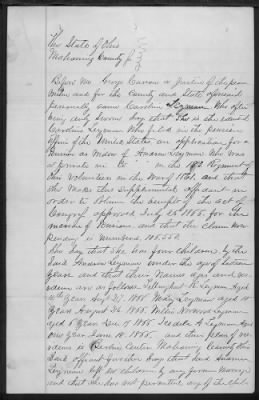 The State of Ohio
Mahoning County ss
Before Me George Carson a Justice of the peace
within and for the County and State aforesaid
personally came Caroline Seyman Who after
being duly sworn says that She is the identical
Caroline Seyman Who filed in the pension
office of the United States an application for a
Pension as Widow of Andrew Seyman Who was
a private in Co in the 102 Regiment
Ohio Volunteers in the War of 1861 and that
She Makes this Supplemental affidavit in
order to obtain the benefit of the act of
Congress approved July 25 1866, for the
increase of Pensions, and that the claim now
pending is numbered 105,552
She Says that She has four children by the
Said Andrew Seyman under the age of sixteen
Years and that their Names ages and
are as follows Seyman Aged
Years Aug 1865 Mary Seyman aged 10
Years August 24 1865 Willis Seyman
aged 8 Years Dec 1865 Seyman Aged
one Year June 18 1865 and their place of
is Center Mahoning County Ohio
Said affiant further Says that Said Andrew
Seyman left no children by any former Marriage
and that She has not any of the